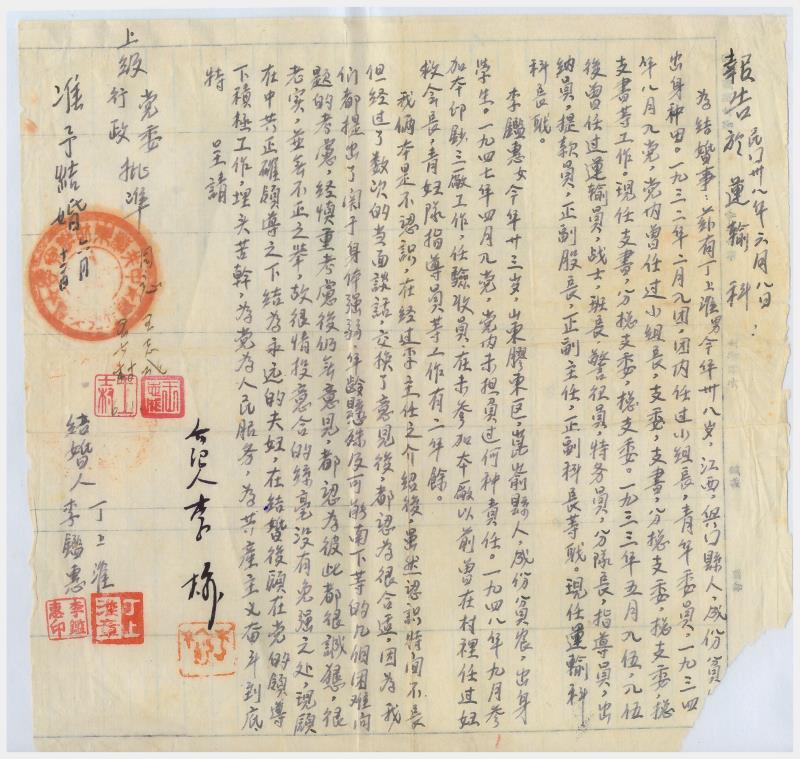 報告於運輸科:
民国卅八年六月八日
為結婚事:茲有丁上淮男今年卅八岁,江西,興国縣人,成份貧
出身种田。一九三二年二月入团,团内任过小組長,青年委員,一九三四
年八月入党,党内曾任过小組長,支委,支書,分總支委,總支委,總
支書等工作。現任支書,分總支委,總支委。一九三三年五月入伍,入伍
後曾任过運輸員,战士,班長,警衛員,特务員,分隊長,指導員,出
納員,提款員,正副股長,正副主任,正副科長等职。現任運輸科
科長职。
李鑑惠女今年廿三岁,山東膠東区,萊前縣人,成份貧农,出身
學生。一九四七年四月入党,党内未担負过何种責任。一九四八年九月参
加本印鈔三廠工作,任驗收員,在未参加本廠以前曾在村裡任过妇
救会長,青妇隊指導員等工作有二年餘。
我俩本是不認識,在经过李主任之介紹後,虽然認識時间不長
但经过了数次的当面談話,交換了意見後,都認為很合适,因為我
们都提出了関于身体强弱,年龄懸殊及可能南下等的几個困难问
題的考慮,经慎重考慮後仍無意見,都認為彼此都很誠懇,很
老实,並無不正之举,故很情投意合的絲毫没有免强之处,現願
在中共正確領導之下結為永远的夫妇,在結婚後願在党的領導
下積極工作,埋头苦幹,為党為人民服务,為共產主义奋斗到底
特
呈請
上級党委
行政批准
准予結婚 六月
十一日
王志成
介紹人 李
結婚人 丁上淮
李鑑惠
丁上淮章
李鑑惠印